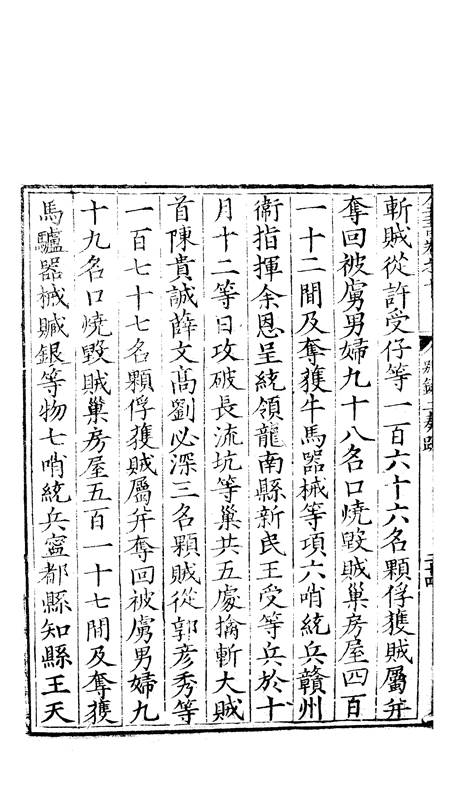 斬賊從許受仔等一百六十六名顆俘獲賊屬并
奪回被虜男婦九十八名口燒毀賊巢房屋四百
一十二間及奪獲牛馬器械等項六哨統兵贛州
衛指揮余恩呈統領龍南縣新民王受等兵於十
月十二等日攻破長流坑等巢共五處擒斬大賊
首陳貴誠薛文高劉必深三名顆賊從郭彥秀等
一百七十七名顆俘獲賊屬并奪回被虜男婦九
十九名口燒毀賊巢房屋五百一十七間及奪獲
馬驢器械贓銀等物七哨統兵寧都縣知縣王天